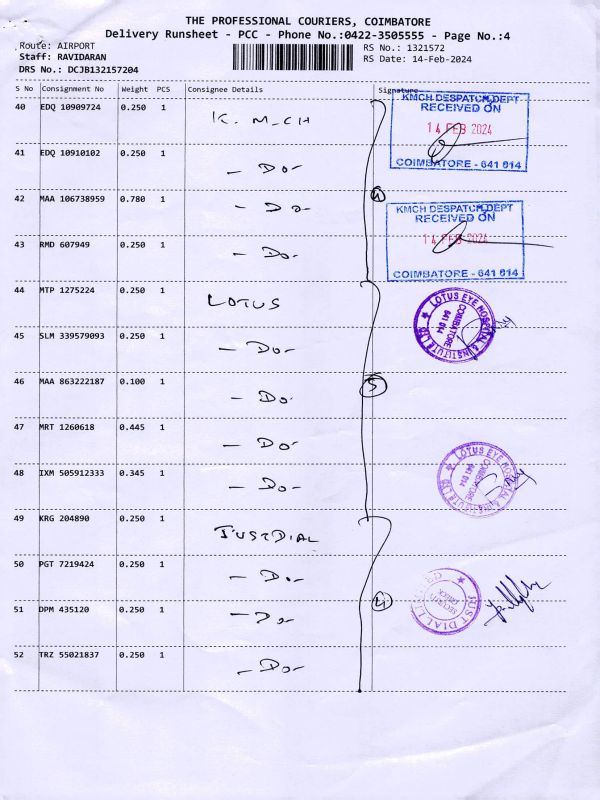 THE PROFESSIONAL COURIERS, COIMBATORE
Delivery Runsheet - PCC - Phone No.:0422-3505555 - Page No.:4
Route: AIRPORT
RS No.: 1321572
Staff: RAVIDARAN
RS Date: 14-Feb-2024
DRS No.: DCJB132157204
S No Consignment No Weight PCS Consignee Details Signature
40 EDQ 10909724 0.250 1 K. M. CH
KMCH DESPATCH DEPT
RECEIVED ON
14 FEB 2024
COIMBATORE - 641 014
41 EDQ 10910102 0.250 1 - Do -
42 MAA 106738959 0.780 1 - Do -
4
KMCH DESPATCH DEPT
RECEIVED ON
14 FEB 2024
COIMBATORE - 641 014
43 RMD 607949 0.250 1 - Do -
44 MTP 1275224 0.250 1 LOTUS
LOTUS EYE HOSPITAL & INSTITUTE LTD
COIMBATORE
641 014
45 SLM 339579093 0.250 1 - Do -
46 MAA 863222187 0.100 1 - Do -
5
47 MRT 1260618 0.445 1 - Do -
LOTUS EYE HOSPITAL & INSTITUTE LTD
COIMBATORE
641 014
48 IXM 505912333 0.345 1 - Do -
49 KRG 204890 0.250 1 JUSTDIAL
50 PGT 7219424 0.250 1 - Do -
JUST DIAL LIMITED
SECURITY
CHECK
51 DPM 435120 0.250 1 - Do -
4
52 TRZ 55021837 0.250 1 - Do -